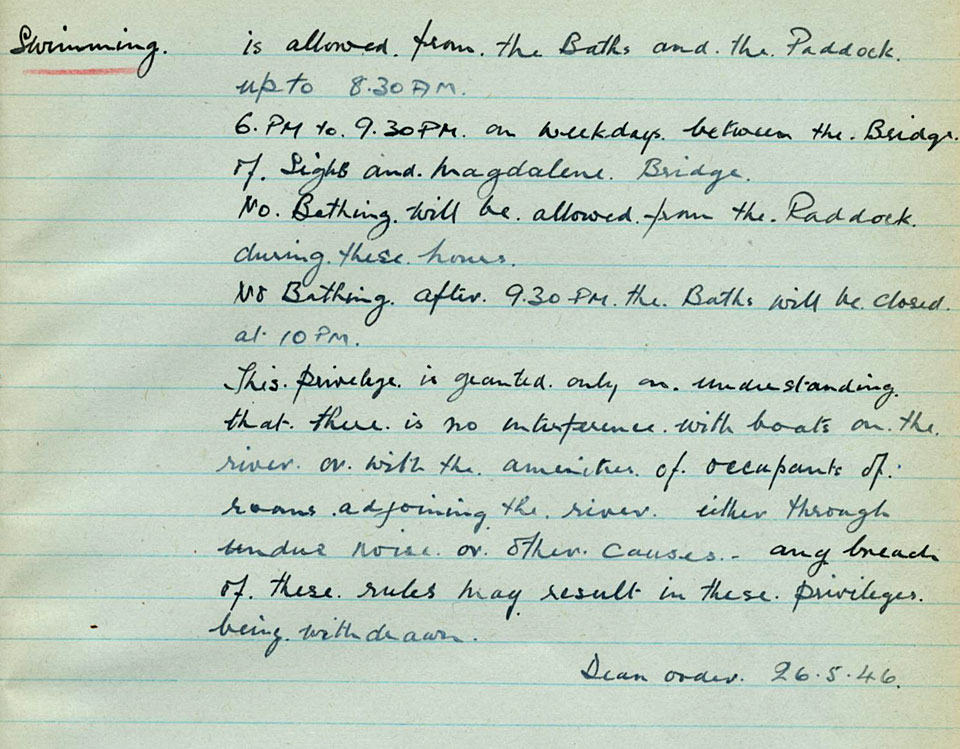 Swimming. is allowed. from. the Baths and. the. Paddock.
up to 8.30 AM.
6. PM to. 9.30 PM. on weekdays. between the. Bridge.
of. Sighs and. Magdalene. Bridge.
No. Bathing. will be. allowed. from the. Paddock.
during. these. hours.
No Bathing. after. 9.30 PM. the. Baths will be. closed.
at 10 PM.
This. privelege. is granted. only on. understanding.
that. there. is no interference. with boats on. the.
river. or. with the. amenities. of. occupants of.
rooms. adjoining. the. river. either through
undue noise. or. other. causes. - any breach
of. these. rules may result in these. privileges.
being. withdrawn.
Dean order. 26.5.46.